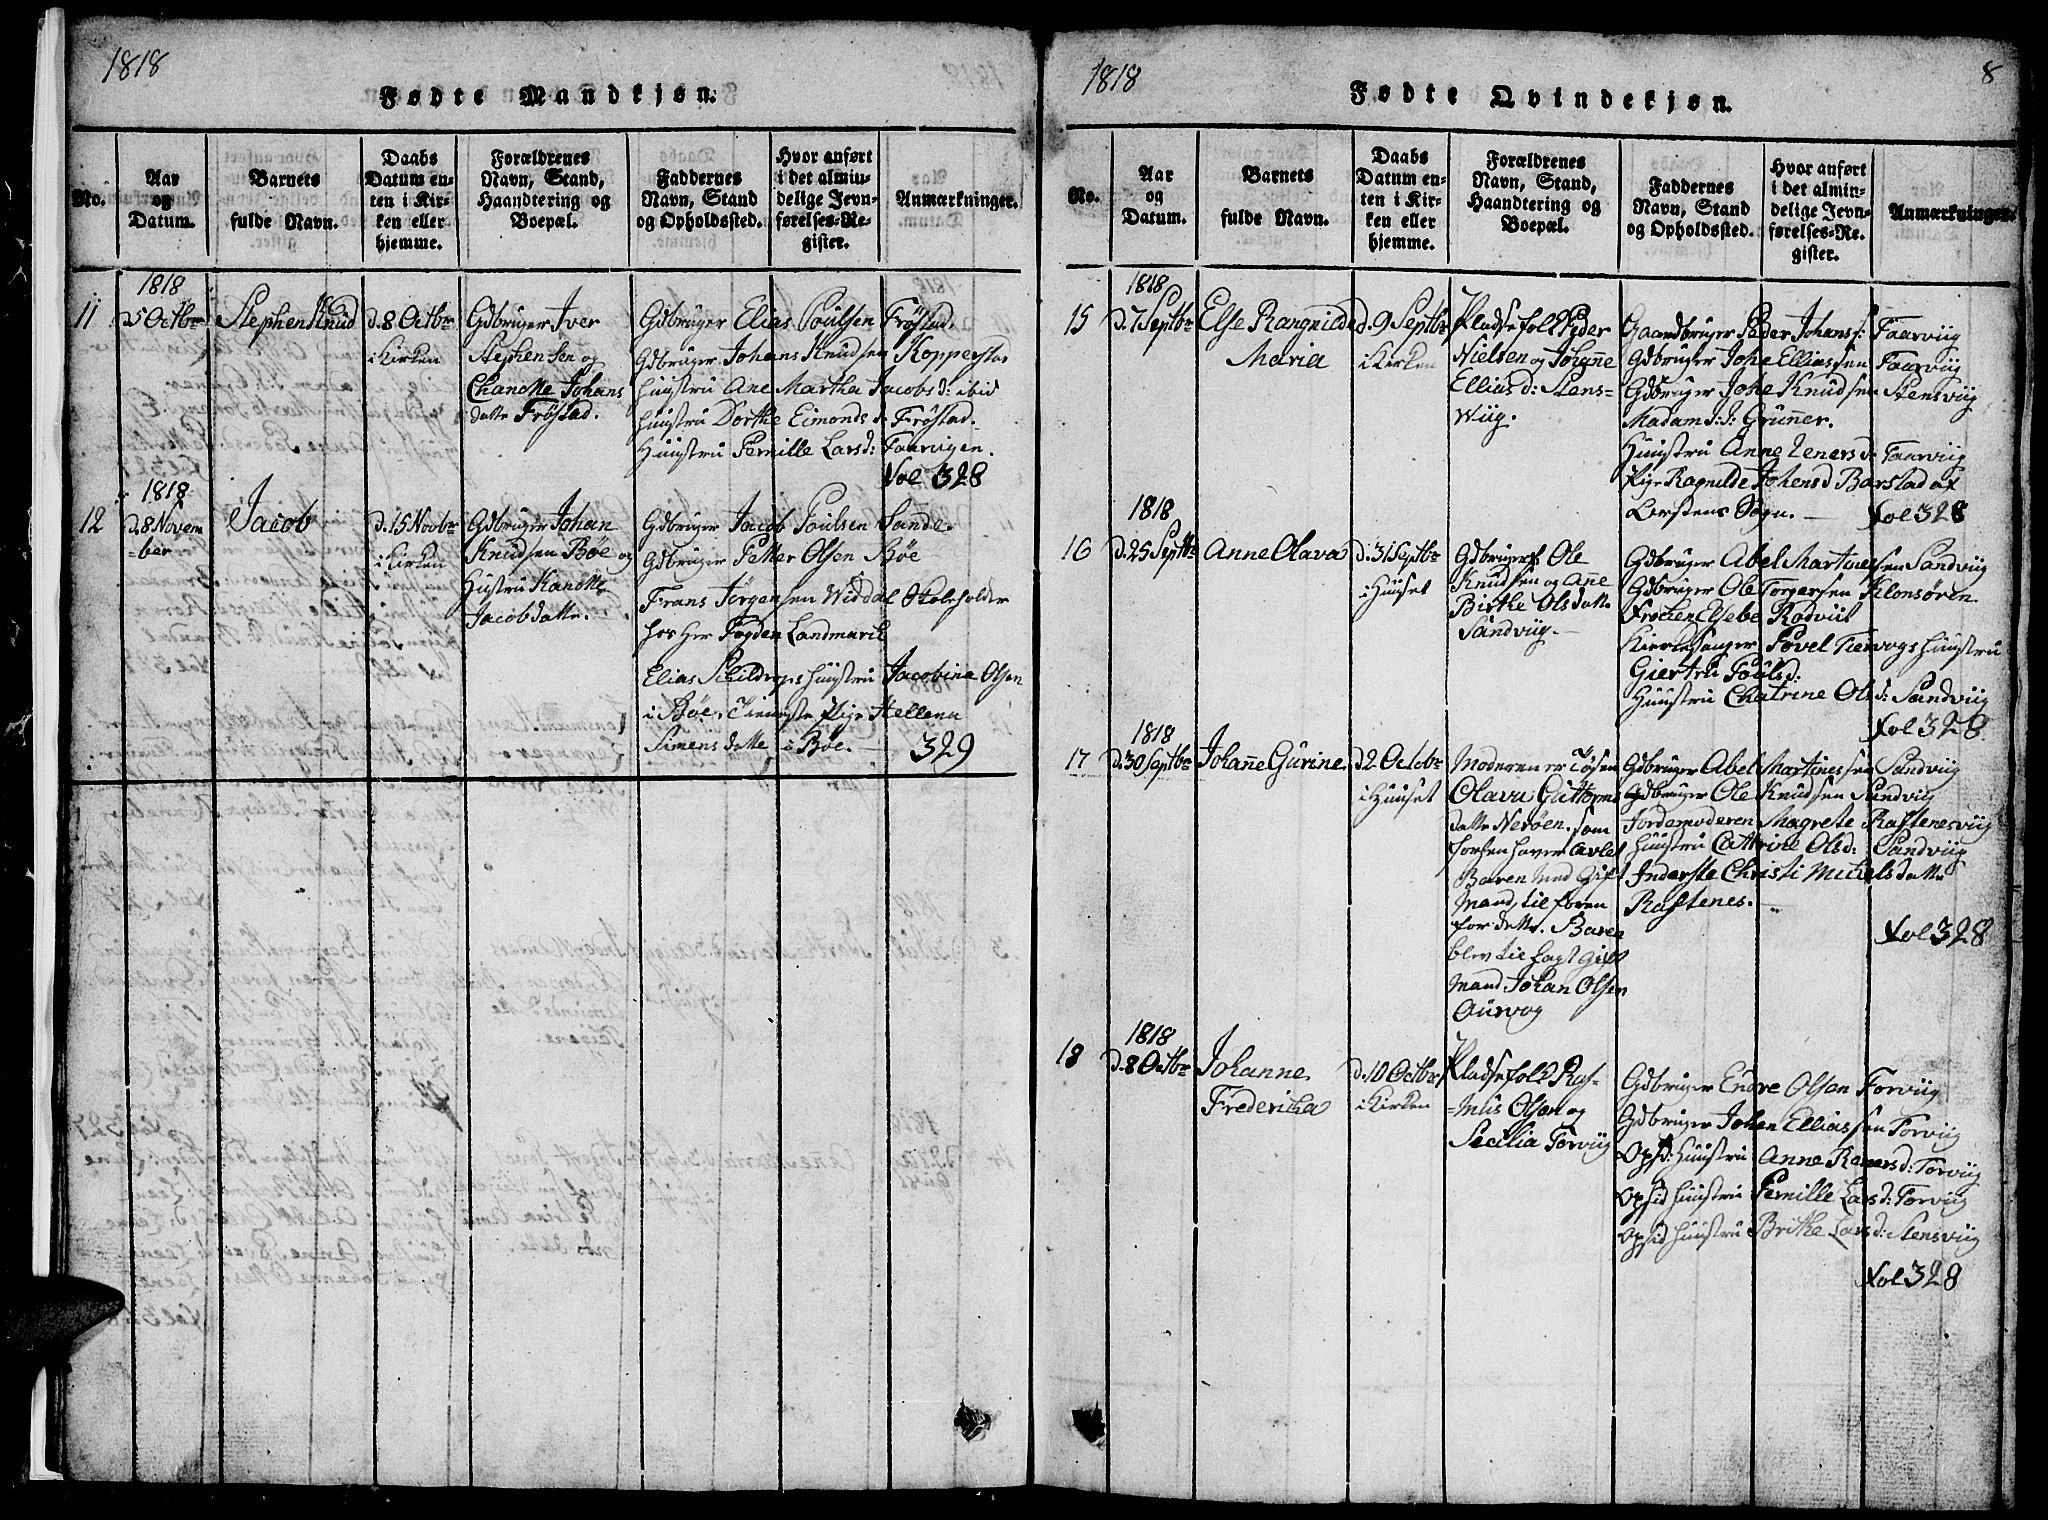 1818
Fødte Mandkjøn.
No.
Aar
og
Datum.
Barnets
fulde Navn.
Daabs
Datum en-
ten i Kir-
ken eller
hjemme.
Forældrenes
Navn, Stand,
Haandtering og
Boepæl.
Faddernes
Navn, Stand
og Opholdssted.
Hvor anført
i det almin-
delige Jevn-
førelses-Re-
gister.
Anmærkninger.
1818
11
D 5 Octbr
Stephen Knud
d. 8 Octbr
i Kirken
Gdbruger Iver
Stephensen og
Chanette Johans
datte Fröstad.
Gdbruger Elias Poulsen Fröstad.
Gdbruger Johans Knudsen Kopperstad
huustru Ane Martha Jacobsd: ibid
huustru Dorthe Eimonds d. Fröstad.
Huustru Pernille Larsd: Faarvigen.
Fol 328
1818
12
d. 8 Novem
=ber
Jacob
d. 15 Novbr
i Kirken
Gdbruger Johan
Knudsen Bøe og
Hustru Kanette
Jacobsdatte.
Gdbruger Jacob Poulsen Sande.
Gdbruger Petter Olsen Bøe
Frans Jörgensen Widdal Skoleholder
hos Her Fogden Landmark
Elias Schildrops huustru Jacobine Olsen
i Bøe, Tieneste Pige Hellena
Simensdatte i Bøe.
329
1818
8
Fødte Qvindekjøn.
No.
Aar
og
Datum.
Barnets
fulde Navn.
Daabs
Datum en-
ten i Kir-
ken eller
hjemme.
Forældrenes
Navn, Stand,
Haandtering og
Boepæl.
Faddernes
Navn, Stand
og Opholdssted.
Hvor anført
i det almin-
delige Jevn-
førelses-Re-
gister.
Anmærkninger.
1818
15
d. 7 Septbr
Else Rangnilde
Maria
d. 9 Septbr
i Kirken
Pladsefolk Peder
Nielsen og Johanne
Elliasd: Stens=
Wiig.
Gaardbruger Peder Johans: Faarviig
Gdbruger Johe Elliassen Faarviig
Gdbruger Johe Knudsen Stensviig
Madam S: J: Grunner.
Huustru Anne d: Faarviig
Pige Ragnilde Johensd Barstad af
Örstens Sogn.
Fol 328
1818
16
d. 25 Septbr
Anne Olava
d. 31 Septbr
i Huuset
Gdbruger Ole
Knudsen og Ane
Birthe Olsdatte
Sandviig.
Gdbruger Abel Martinessen Sandviig
Gdbruger Ole Torgersen Klonsören
Frøken Elsebe Rodviit
Kierkesanger Povel huustru
Giertru Poulsd:
Huustru Chatrine Olsd: Sandviig
Fol 328
1818
17
d. 30 Septbr
Johanne Gurine
d. 2 Octobr
i Huuset
Moderen er Tøsen
Olava Guttorms
datte Nerøen. som
forsen haver avlet
Baren med Gift
Mand, til foren
for dette. Baren
blev tillagt Gift
Mand Johan Olsen
Aurvog
Gdbruger Abel Martinessen Sandviig
Gdbruger Ole Knudsen Sandviig
Jordemoderen Magrete Raftenesviig
Huustru Cathrine Olsd: Sandviig
Inderste Christi Mickelsdatte
Raftenes.
Fol 328
1818
18
d. 8 Octbr
Johanne
Frederika
d. 10 Octbr
i Kirken
Pladsefolk Ras-
=mus Olsen og
Secilia Torviig
Gdbruger Endre Olsen Forviig
Gdbruger Johen Elliassen Forviig
Opsd: Huustru Anne Ranersd: Torviig
Opsid Huustru Pernille Larsd: Torviig
Opsid Huustru Brithe Larsd: Stensviig
Fol 328